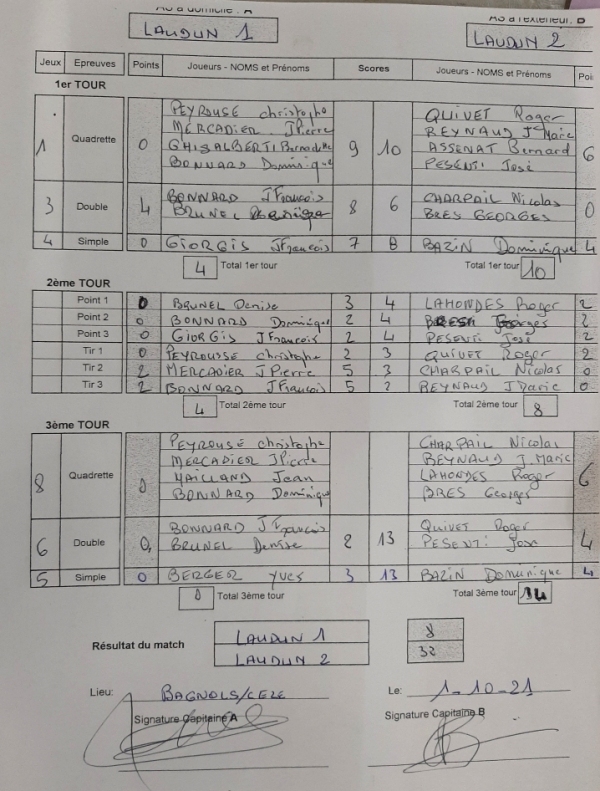 AS à domicile : A AS à l'extérieur : B
LAUDUN 1 LAUDUN 2
Jeux Epreuves Points Joueurs - NOMS et Prénoms Scores Joueurs - NOMS et Prénoms Poi
1er TOUR
PEYROUSE christophe QUIVET Roger
MERCADIER JPierre REYNAUD J Marie
1 Quadrette 0 GHISALBERTI Bernadette 9 10 ASSENAT Bernard 6
BONNARD Dominique PESENTI José
3 Double 4 BONNARD JFrancois 8 6 CHARPAIL Nicolas 0
BRUNEL BRES GEORGES
4 Simple 0 GIORGIS JFrancois 7 8 BAZIN Dominique 4
4 Total 1er tour Total 1er tour 10
2ème TOUR
Point 1 0 BRUNEL Denise 3 4 LAHONDES Roger 2
Point 2 0 BONNARD Dominique 2 4 BRES Georges 2
Point 3 0 GIORGIS JFrancois 2 4 PESENTI José 2
Tir 1 0 PEYROUSSE christophe 2 3 QUIVET Roger 2
Tir 2 2 MERCADIER JPierre 5 3 CHARPAIL Nicolas 0
Tir 3 2 BONNARD JFrancois 5 2 REYNAUD J Marie 0
4 Total 2ème tour Total 2ème tour 8
3ème TOUR
PEYROUSE christophe CHARPAIL Nicolas
MERCADIER JPierre REYNAUD J Marie
8 Quadrette 0 MAILLAND Jean LAHONDES Roger 6
BONNARD Dominique BRES Georges
6 Double 0 BONNARD JFrancois 2 13 QUIVET Roger 4
BRUNEL Denise PESENTI José
5 Simple 0 BERGER Yves 3 13 BAZIN Dominique 4
0 Total 3ème tour Total 3ème tour 14
Résultat du match LAUDUN 1 8
LAUDUN 2 32
Lieu: BAGNOLS/CEZE Le: 1-10-21
Signature Capitaine A Signature Capitaine B